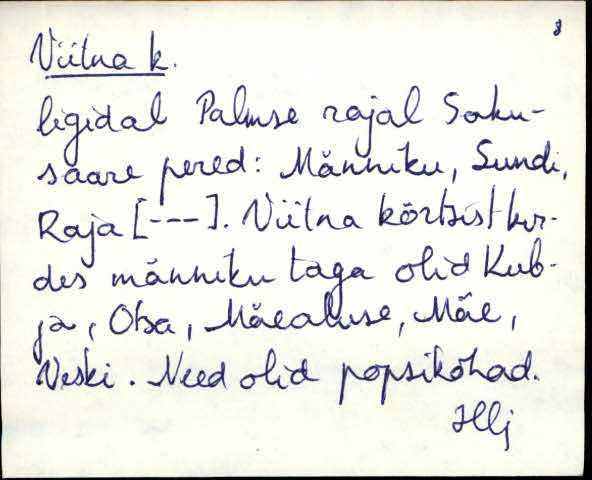 8
Viitna k.
ligidal Palmse rajal Soku-
saare pered: Männiku, Sundi,
Raja [---]. Viitna kõrtsist kir-
des männiku taga olid Kub-
ja, Otsa, Mäealuse, Mäe,
Veski. Need olid popsikohad.